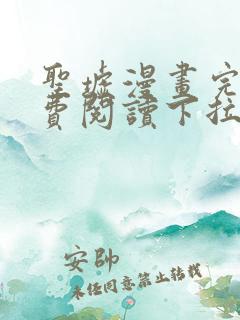 聖墟漫畫完
費閱讀下拉
安帥
未经同意禁止转载